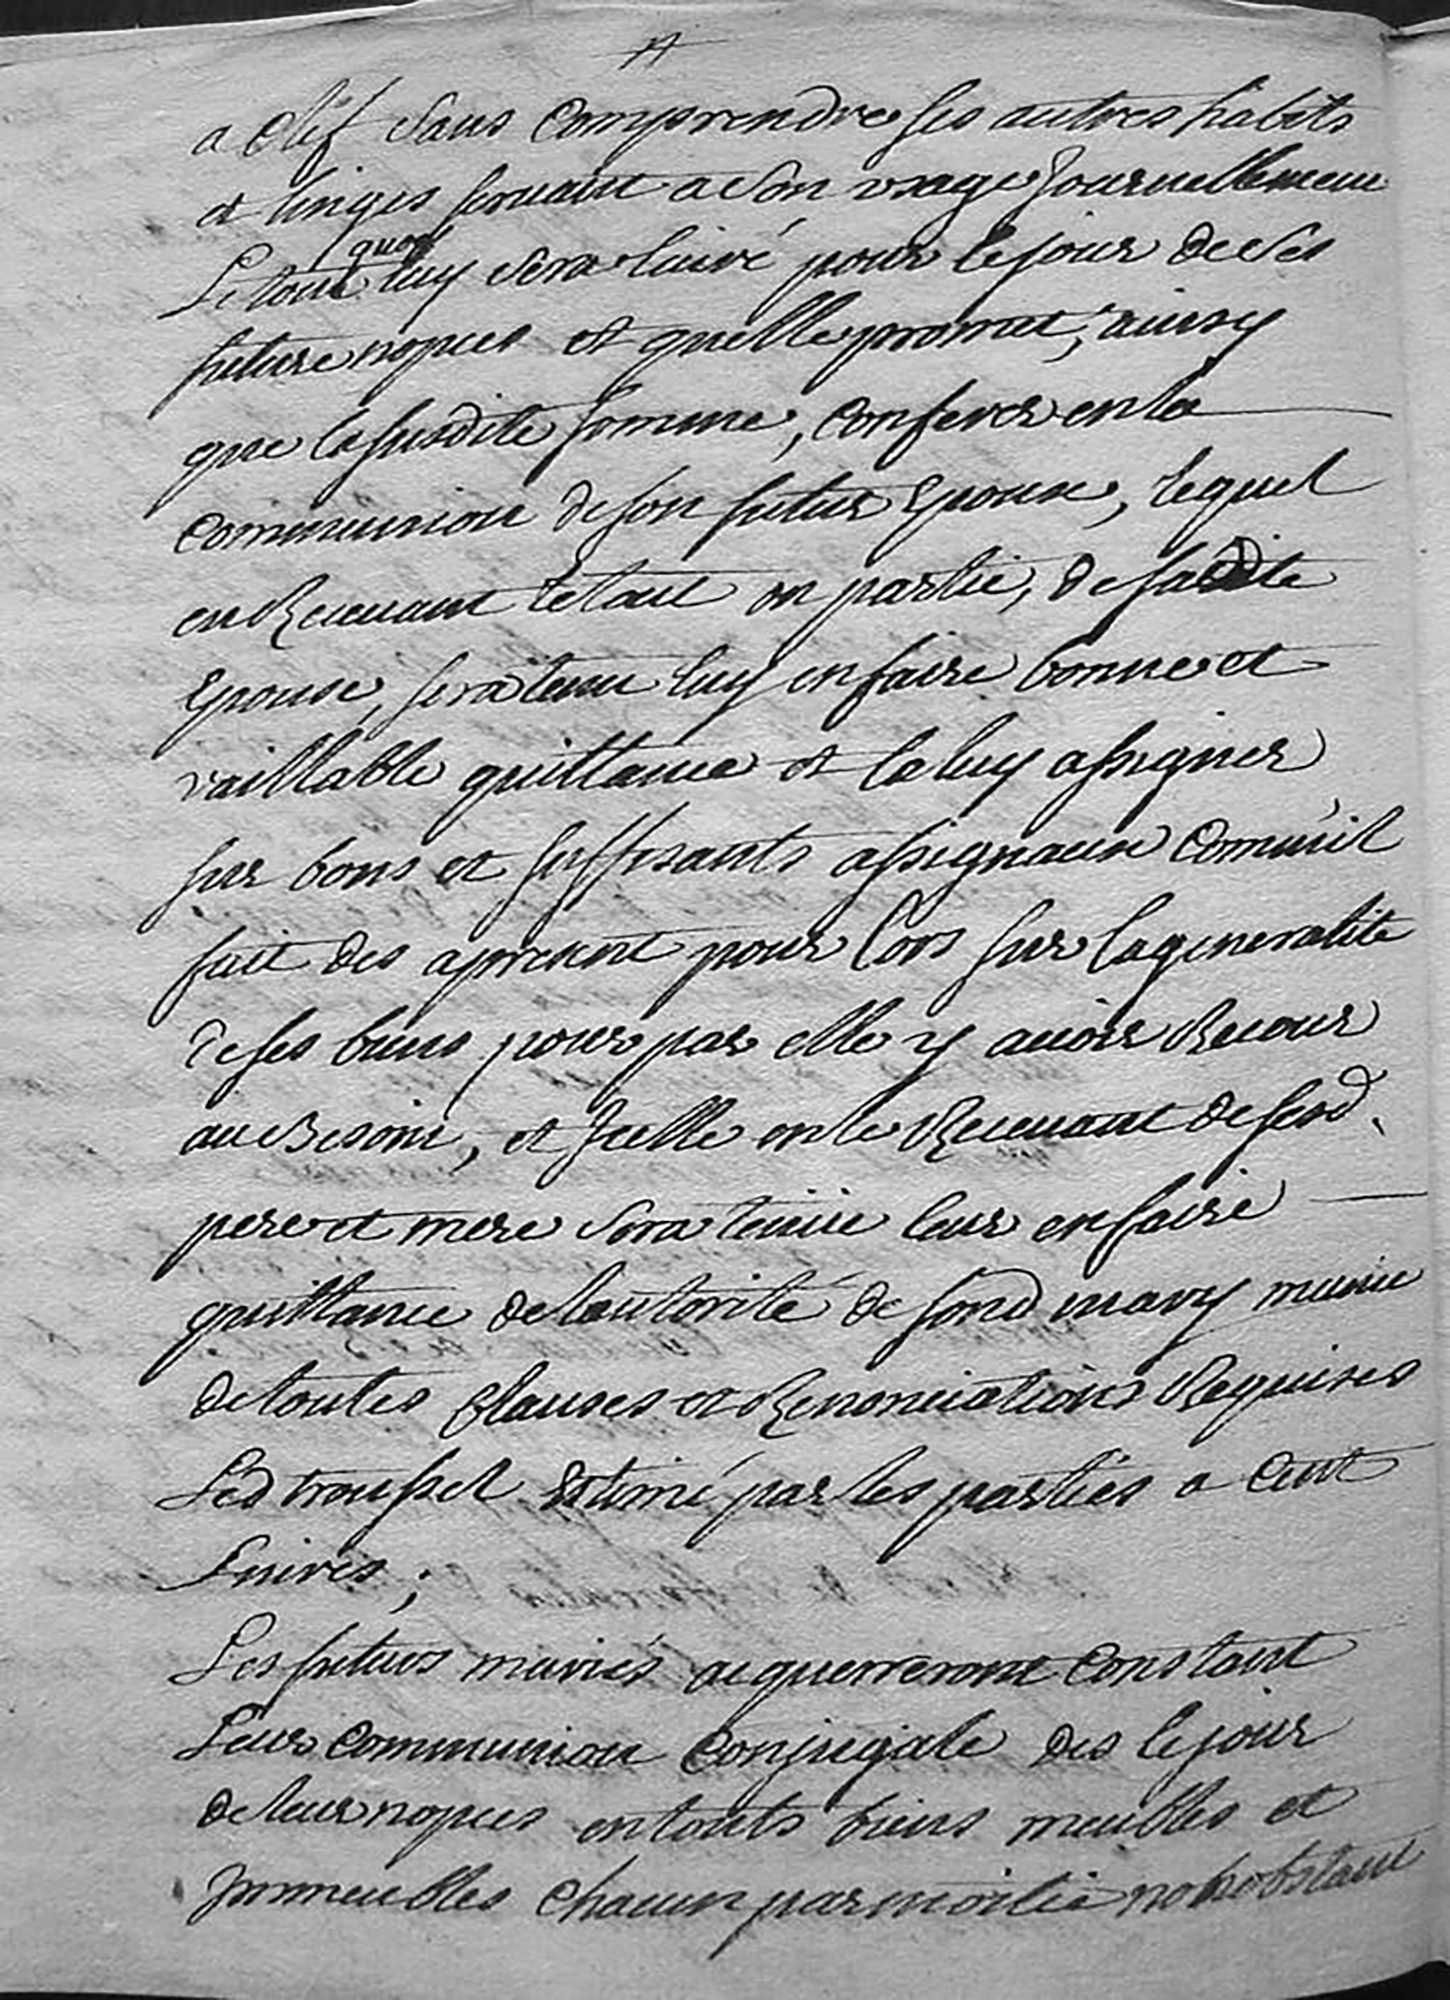 a Clef sans comprendre ses autres habits
et linges servant a son usage Journellement
Le tout quoy luy sera livré pour le jour de ses
future nopces et quelle promet, ainsy
que la susdite somme, conferer en la
communion de son futur Epoux, lequel
en Recevant le tout ou partie, de sadite
Epouse, sera tenu luy en faire bonne et
vaillable quittance et la luy assigner
sur bons et suffisants assignaux comm'il
fait des apresent pour lors sur la generalité
de ses biens pour par elle y avoir Recour
au Besoin, et Icelle en le Recevant de sesd.
pere et mere sera tenüe leur en faire
quittance de lautorité de sond mary munie
de toutes Clauses et Renonciations Requises
Led troussel Estimé par les parties a Cent
Livres;
Les futurs mariés acquerreront constant
Leur communion conjugale des le jour
de leur nopces en touts biens meubles et
Immeubles chacun par moitié nonobstant